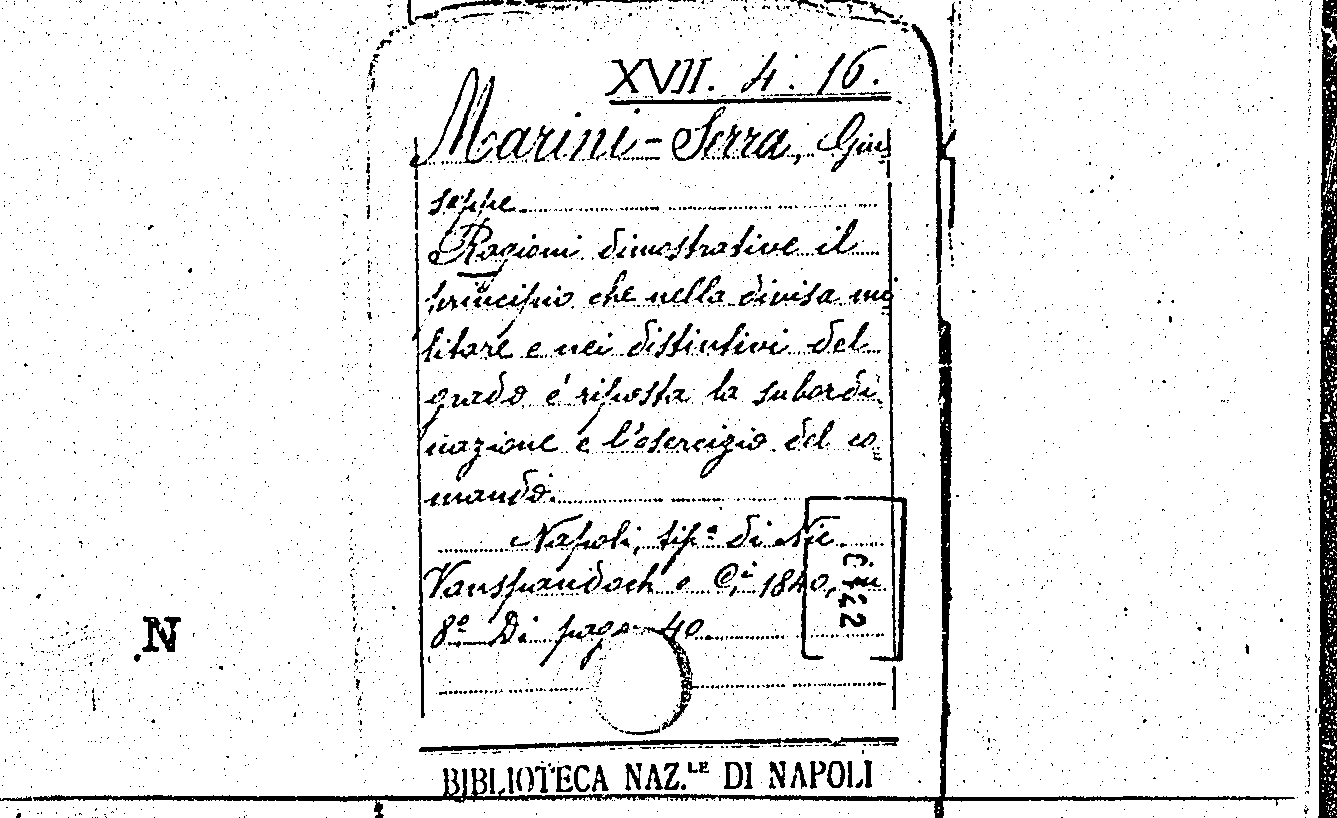 XVII. 4. 16.
Marini-Serra, Giu
seppe
Ragioni dimostrative il
principio che nella divisa mi
litare e nei distintivi del
grado é riposta la subordi
nazione e l'esercizio del co
mando.
Napoli, tipª di Nic.
Vanspandoch e C.i 1840, in
8º Di pag. 40.
N
BIBLIOTECA NAZ.LE DI NAPOLI